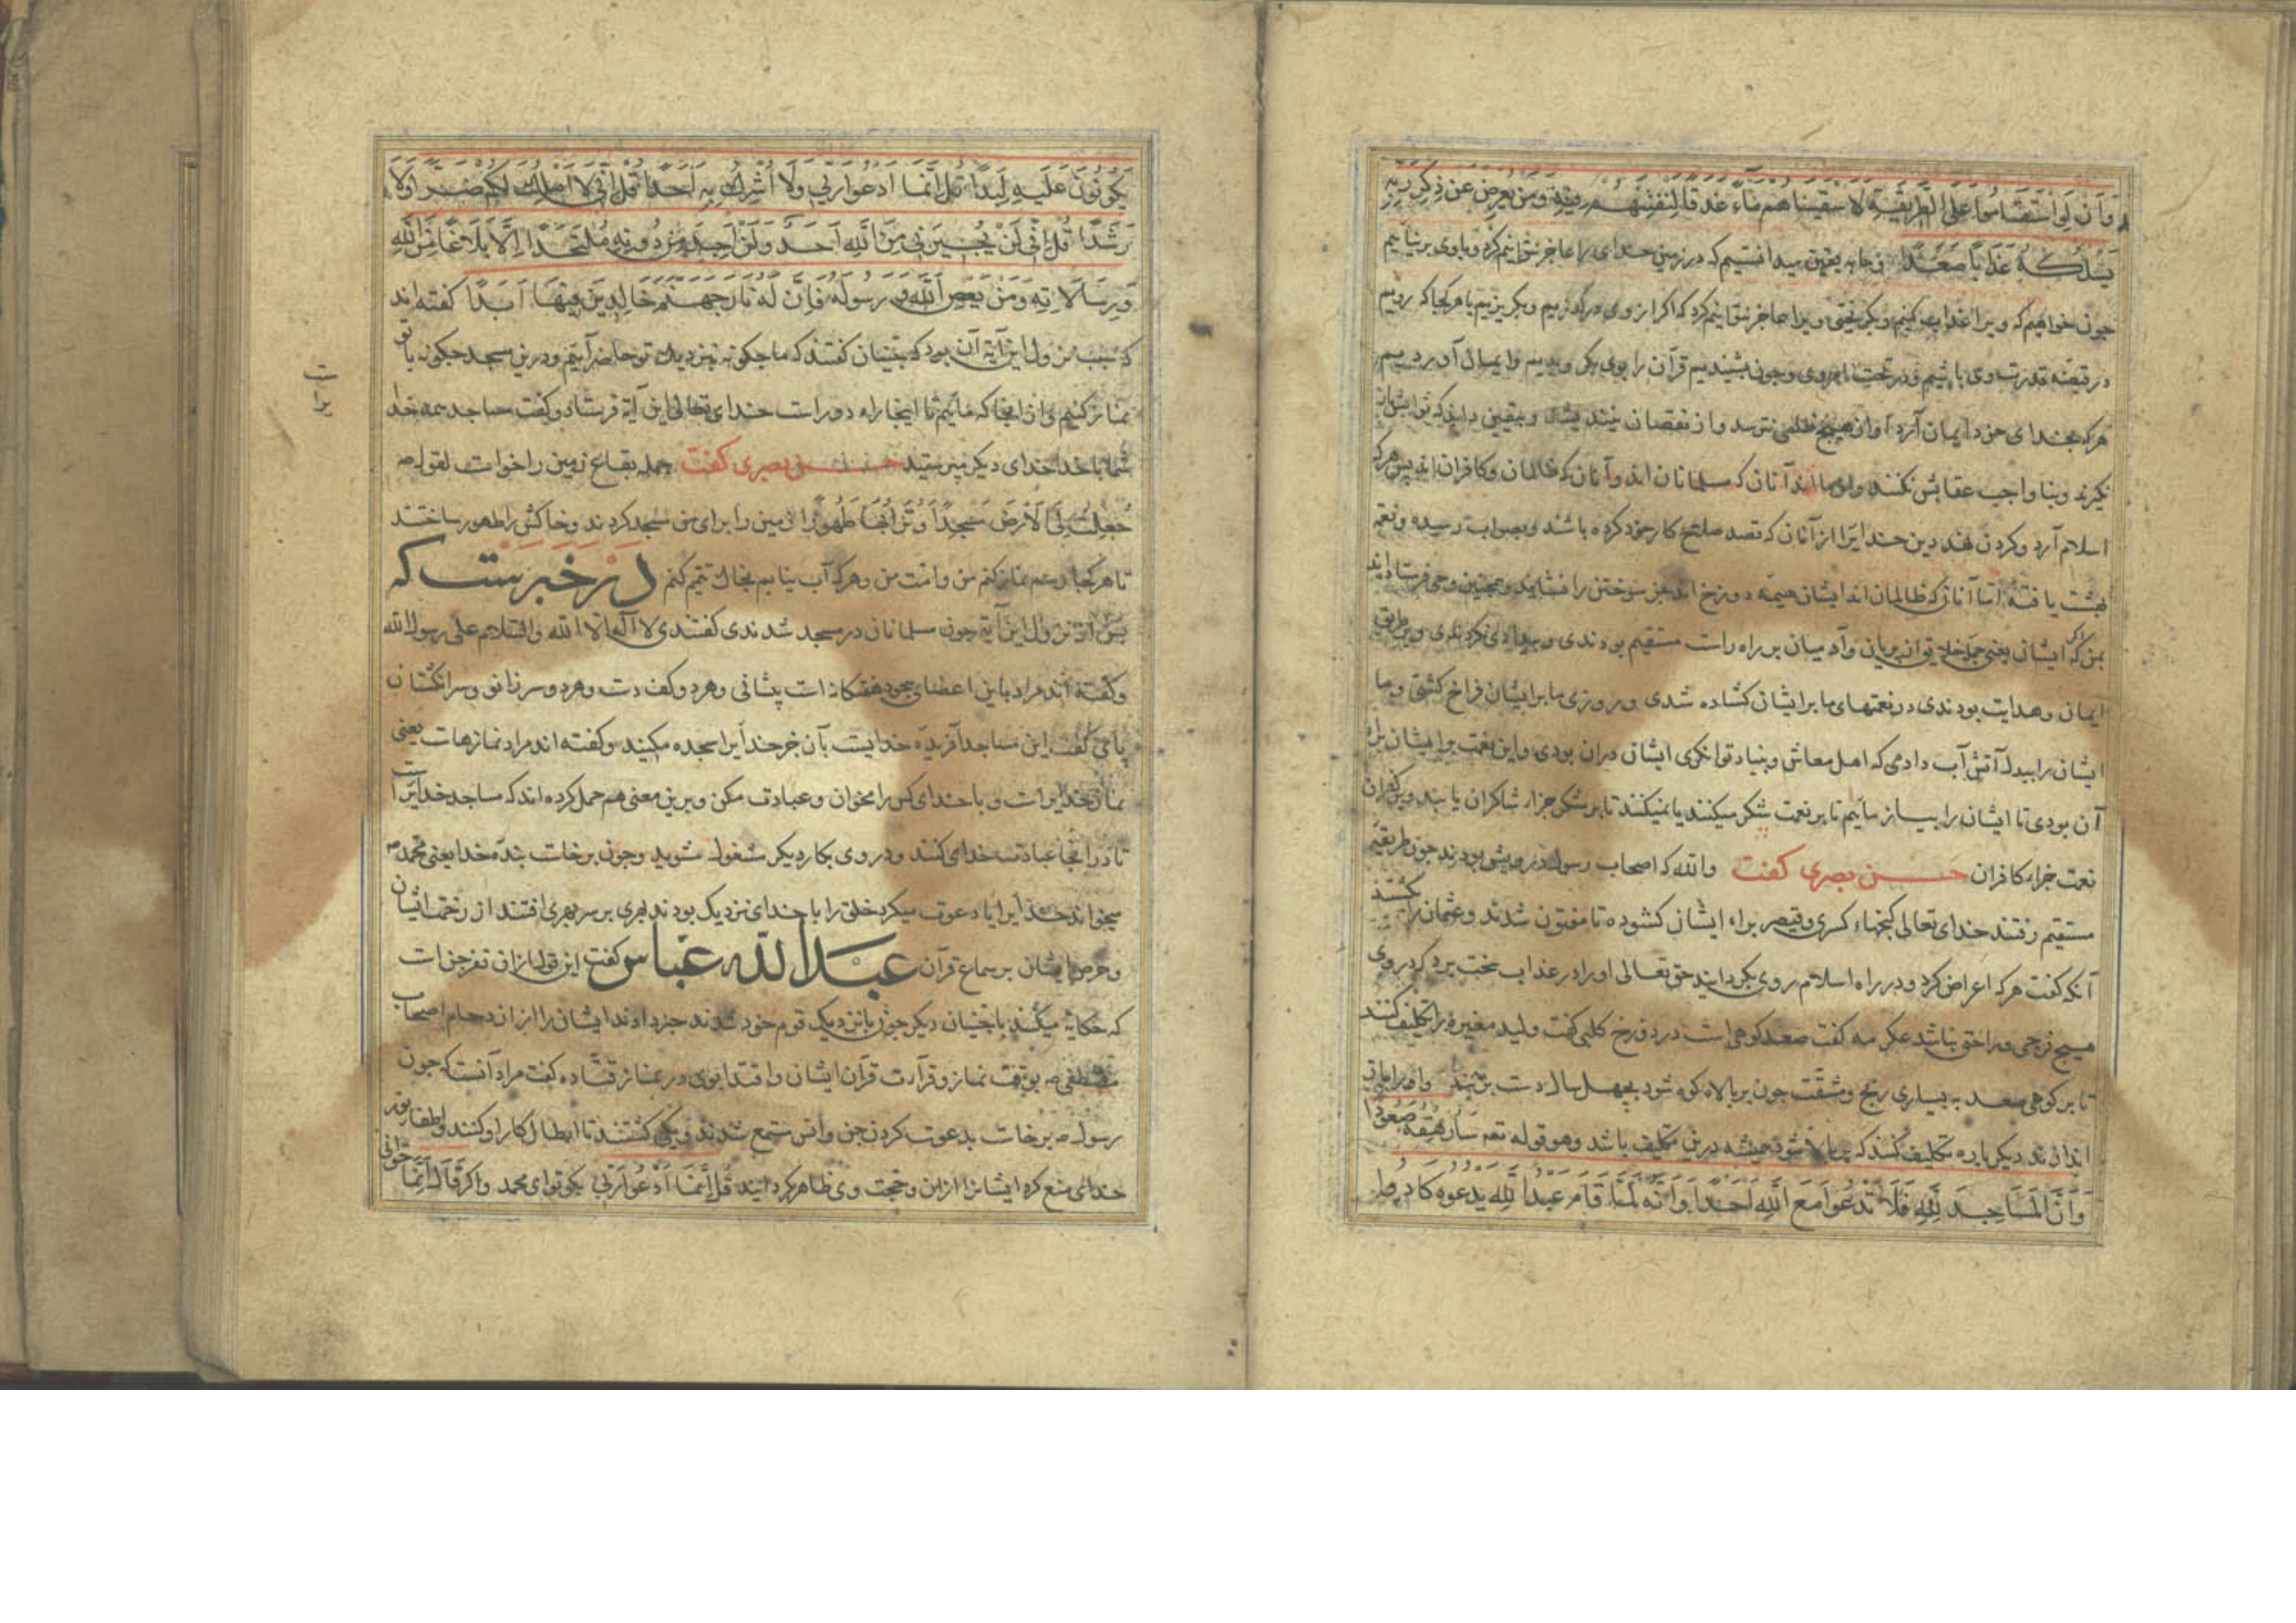 وَاَن لَوِ اسْتَقَامُوا عَلَی الطَّرِیقَةِ لَاَسْقَیْنَاهُم مَآءً غَدَقًا لِنَفْتِنَهُم فِیهِ وَمَن یُعرِض عَن ذِکرِ رَبِّهِ
یَسْلُکهُ عَذَابًا صَعَدًا و ما به یقین میدانستیم که در زمین خدای را عاجز نتوانیم کرد و باوی برنیاییم
چون خواهیم که ویرا عذاب کنیم و بگریختن ویرا عاجز نتوانیم کرد که اکر از وی درگذریم و بگریزیم یا هر کجا که رویم
در قبضه قدرت وی باشیم و در تحت امر وی و چون بشنیدیم قرآن را بوی بگرویدیم و ایمان آوردیم
هر که بخدای خود ایمان آرد او از هیچ ظلمی نترسد و از نقصان نیندیشد و بیقین داند که ثوابش باز
نگیرند و بنا واجب عقابش نکنند و از ما اند آنان که مسلمانان اند و آنان که ظالمان و کافران اند پس هر که
اسلام آرد و گردن نهد دین خدایرا از آنان که قصد صلاح کار خود کرده باشند و بصواب رسیده و نعمة
بهشت یافته اما آنان که ظالمان اند ایشان هیمه دوزخ اند جز سوختن را نشایند و همچنین وحی فرستادند
بمن که اکر ایشان یعنی جمله خلایق از پریان و آدمیان بر راه راست مستقیم بودندی و بیدادی نکردندی و بر طریق
ایمان و هدایت بودندی در نعمتهای ما بر ایشان گشاده شدی و روزی ما بر ایشان فراخ گشتی و ما
ایشان را بیدل آتش آب دادمی که اصل معاش و بنیاد توانگری ایشان دران بودی و این نعمت بر ایشان برای
آن بودی تا ایشان را بیازماییم تا بر نعمت شکر میکنند یا نمیکنند تا بر شکر جزاء شاکران یابند و بر کفران
نعمت جزاء کافران حسن بصری گفت والله که اصحاب رسول درویش بودند چون بر طریقه
مستقیم رفتند خدای تعالی گنجهاء کسری و قیصر براء ایشان گشوده تا مفتون شدند و عثمان را بکشتند
آنکه گفت هر که اعراض کرد و در راه اسلام روی بگردانید حق تعالی او را در عذاب سخت برد که در وی
هیچ فرجی و راحتی نباشد عکرمه گفت صعد کوهی است در دوزخ کلبی گفت ولید مغیره را تکلیف کنند
تا بر کوهی صعد به بسیاری رنج و مشقت چون بر بالاء کوه شود بچهل سال دست بزنند
اندازند دیگر باره تکلیف کنند که ببالا شود همیشه درین تکلیف باشد وهو قوله تعه سَاُرهِقُهُ صَعُودًا
وَاَنَّ المَسَاجِدَ لِلّهِ فَلَا تَدعُوا مَعَ اللهِ اَحَدًا وَاَنَّهُ لَمَّا قَامَ عَبدُ اللهِ یَدعوهُ کَادُوا
یَکُونُونَ عَلَیهِ لِبَدًا قُل اِنَّمَا اَدعُوا رَبّی وَلَا اُشرِكُ بِهِ اَحَدًا قُل اِنّی لَا اَملِكُ لَکُم ضَرًّا وَلَا
رَشَدًا قُل اِنّی لَن یُجِیرَنی مِنَ اللهِ اَحَدٌ وَلَن اَجِدَ مِن دُونِهِ مُلتَحَدًا اِلَّا بَلَاغًا مِنَ اللهِ
وَرِسَالَاتِهِ وَمَن یَعصِ اللهَ وَرَسُولَهُ فَاِنَّ لَهُ نَارَ جَهَنَّمَ خَالِدِینَ فِیهَا اَبَدًا گفته اند
که سبب نزول این آیه آن بود که جنیان گفتند که ما چگونه بنزدیک تو حاضر آییم و درین مسجد چگونه با تو
نماز کنیم و از انجا که ماییم تا اینجا راه دور است خدای تعالی این آیة فرستاد و گفت مساجد همه خدا
راست
شما با خدا خدای دیگر مپرستید حسن بصری گفت جمله بقاع زمین را خواست لقوله صه
جُعِلَت لِیَ الاَرضُ مَسجِدًا وَتُرَابُهَا طَهُورًا زمین را برای من مسجد کردند و خاکش را طهور ساختند
تا هر کجا رسم نماز کنم من و امت من و هرکه آب نیابم بخاک تیمم کنم در خبرست که
پس از نزول این آیة چون مسلمانان در مسجد شدندی گفتندی لا آله الا الله والسّلام علی رسول الله
و گفته اند مراد باین اعضای سجود هفتگانه است پیشانی و هردو کف دست و هردو سر زانو و سر انگشتان
پا می گفت این مساجد آفریده خدایست بآن جز خدایرا سجده مکنید و گفته اند مراد نمازهاست یعنی
نماز خدایراست و با خدای کس را مخوان و عبادت مکن و برین معنی هم حمل کرده اند که مساجد خدایراست
تا در انجا عبادت خدای کنند و در وی بکار دیگر مشغول شوید و چون برخاست بنده خدا یعنی محمد صه
میخواند خدایرا یا دعوت میکرد خلق را با خدای نزدیک بودند پری بر سر پری افتند از زحمت ایشان
و حرص ایشان بر سماع قرآن عبدالله عباس گفت این قول از آن نفر جن است
که حکایة میکنند با جنیان دیگر چون با نزدیک قوم خود شدند خبر دادند ایشان را از ازدحام اصحاب
مصطفی صه بوقت نماز و قرآءت قرآن ایشان و اقتدا بوی در نماز قتاده گفت مراد آنست که چون
رسول صه برخاست بدعوت کردن جن و انس مجتمع شدند و یکی گشتند تا ابطال کار او کنند و اطفا نور
خدای منع کرد ایشانرا ازان و حجت وی ظاهر گردانید قُل اِنَّمَا اَدعُوا رَبّی بگو تو ای محمد و اگر قال اِنَّمَا
خوانی